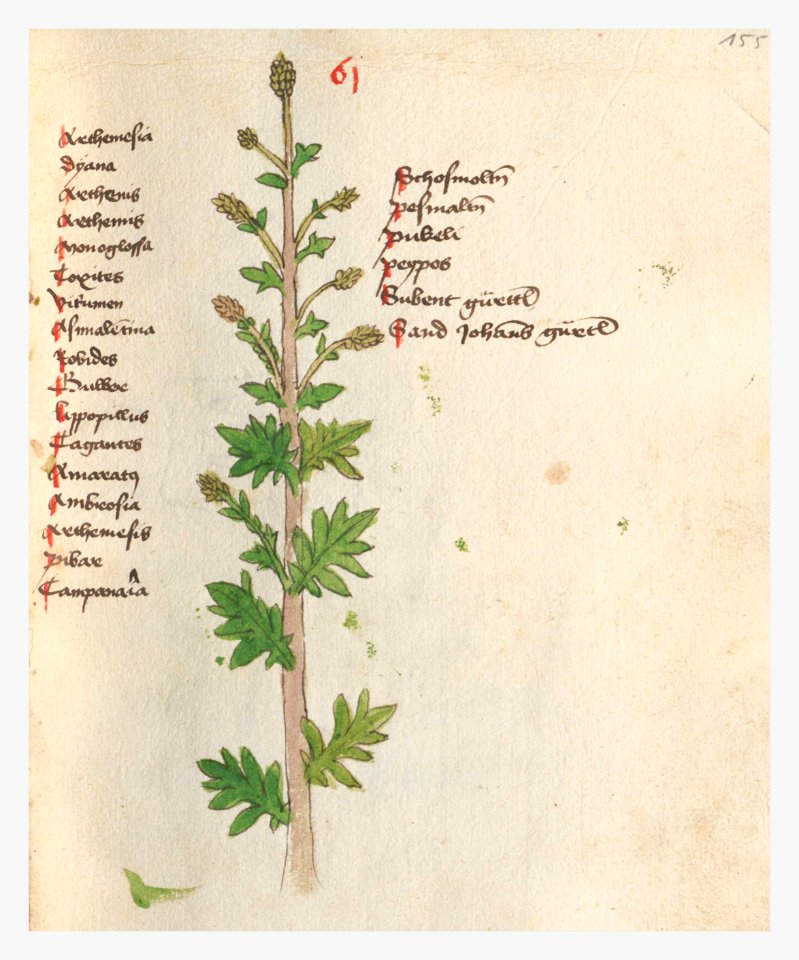 155
61
Arthemesia
dyana
Arthenus
Arthemis
Monoglossa
Toxites
Vitumen
Asmalentina
Robides
Bulwoe
Lippopillus
Tagantes
Amaratꝰ
Ambrosia
Arthemesis
pibar
Campanaria
Schosmoltn̄
pesmaltn̄
pukeli
peypos
Subent gürttl
Sand Johans gürtl